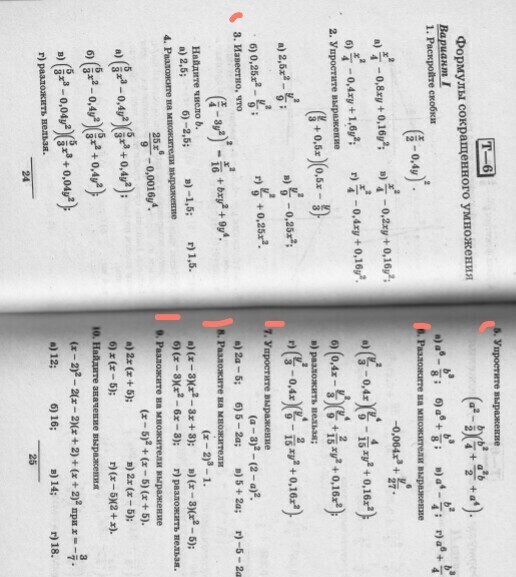 Формулы сокращенного умножения
Т—6
Вариант I
1. Раскройте скобки
(x/2 − 0,4y)².
а) x²/4 − 0,8xy + 0,16y²; в) x²/4 − 0,2xy + 0,16y²;
б) x²/4 − 0,4xy + 1,6y²; г) x²/4 − 0,4xy + 0,16y².
2. Упростите выражение
(y/3 + 0,5x)(0,5x − y/3).
а) 2,5x² − y²/9; в) y²/9 − 0,25x²;
б) 0,25x² − y²/9; г) y²/9 + 0,25x².
3. Известно, что
(x/4 − 3y²)² = x²/16 + bxy² + 9y⁴.
Найдите число b.
а) 2,5; б) −2,5; в) −1,5; г) 1,5.
4. Разложите на множители выражение
25x⁶/9 − 0,0016y⁴.
а) (5/3 x³ − 0,4y²)(5/3 x³ + 0,4y²);
б) (5/3 x² − 0,4y²)(5/3 x² + 0,4y²);
в) (5/3 x³ − 0,04y²)(5/3 x³ + 0,04y²);
г) разложить нельзя.
24
5. Упростите выражение
(a² − b/2)(b²/4 + a²b/2 + a⁴).
а) a⁶ − b³/8; б) a⁶ + b³/8; в) a⁴ − b²/4; г) a⁶ + b³/4
6. Разложите на множители выражение
−0,064x³ + y⁶/27.
а) (y²/3 − 0,4x)(y⁴/9 − 4/15 xy² + 0,16x²);
б) (0,4x − y²/3)(y⁴/9 + 2/15 xy² + 0,16x²);
в) разложить нельзя;
г) (y²/3 − 0,4x)(y⁴/9 + 2/15 xy² + 0,16x²).
7. Упростите выражение
(a − 3)² − (2 − a)²
а) 2a − 5; б) 5 − 2a; в) 5 + 2a; г) −5 − 2a
8. Разложите на множители
(x − 2)³ − 1.
а) (x − 3)(x² − 3x + 3); в) (x − 3)(x² − 5);
б) (x − 3)(x² − 6x − 3); г) разложить нельзя.
9. Разложите на множители выражение
(x − 5)² + (x − 5)(x + 5).
а) 2x(x + 5); в) 2x(x − 5);
б) x(x − 5); г) (x − 5)(2 + x).
10. Найдите значение выражения
(x − 2)² − 2(x − 2)(x + 2) + (x + 2)² при x = −3/7.
а) 12; б) 16; в) 14; г) 18.
25